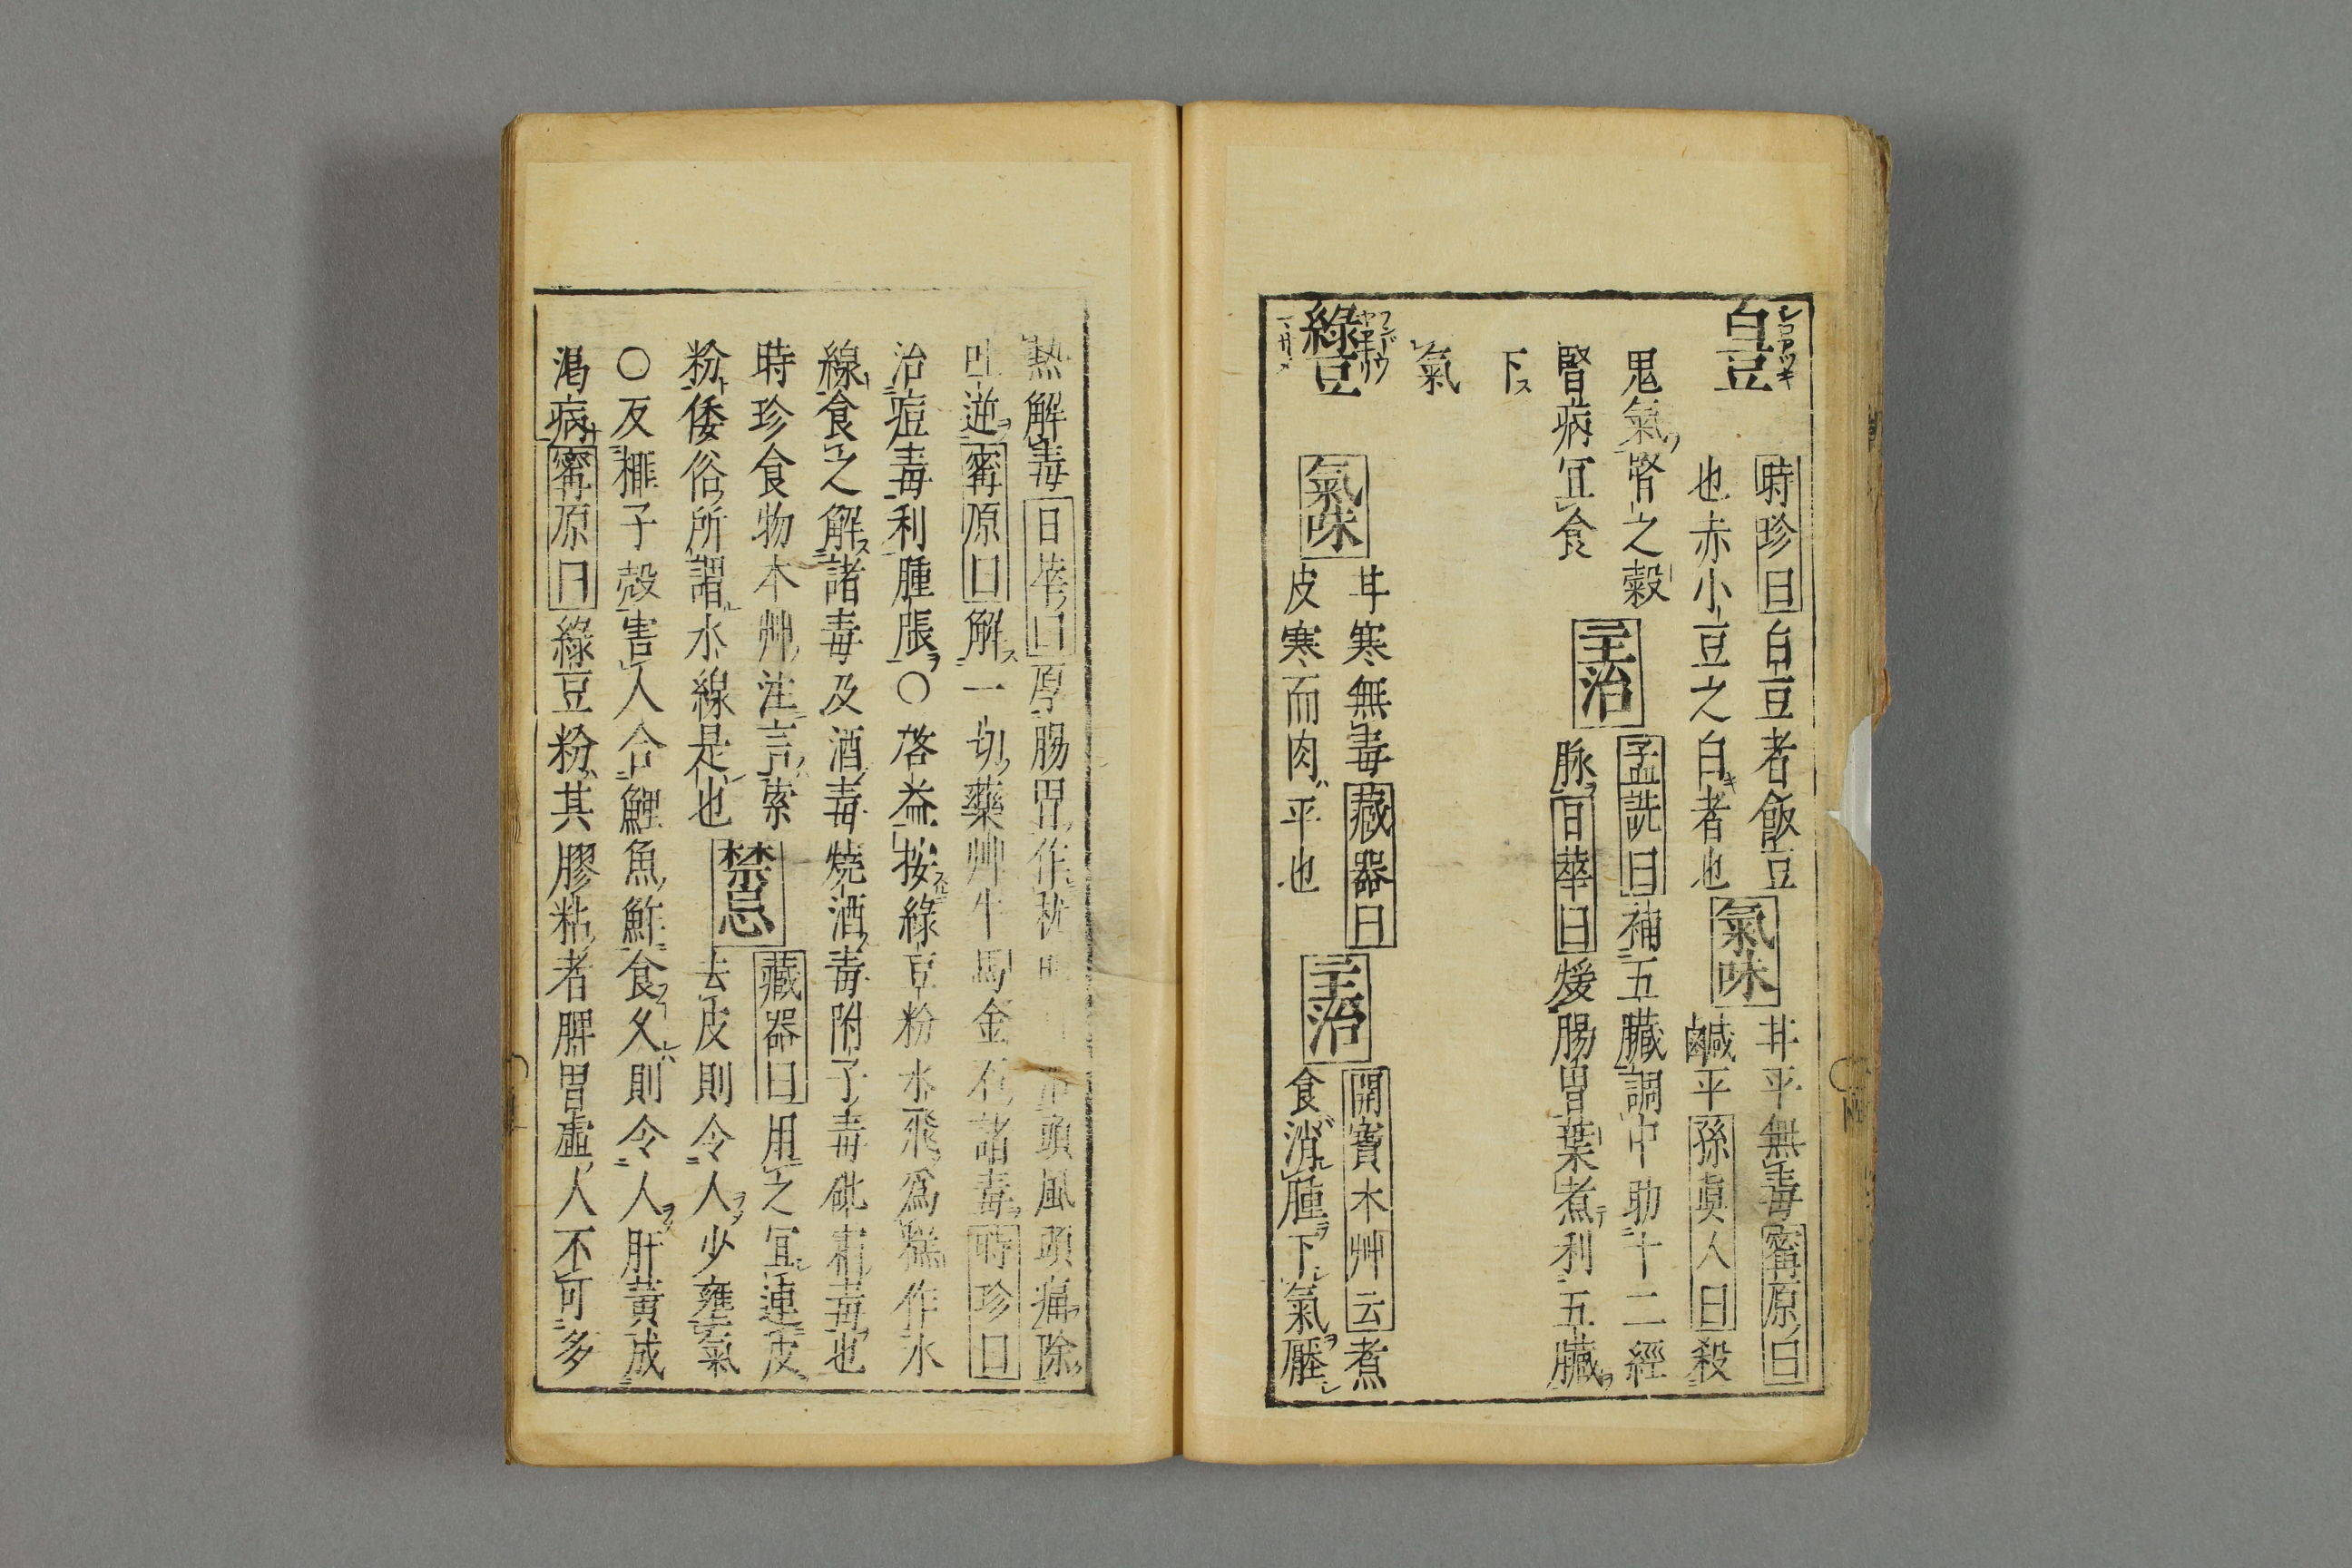 白豆
シロアツキ
時珍曰白豆者飯豆
也赤小豆之白キ者也
氣味
甘平無毒寗原曰
鹹平孫眞人曰殺
鬼氣腎之穀
腎病宜食
主治
孟詵曰補五臟調中助十二經
脉日華曰煖腸胃葉煮利五臟
下ス
氣
綠豆
氣味
甘寒無毒藏器曰
皮寒而肉平也
主治
開寳本艸云煮
食消腫下氣壓
熱解毒日華曰厚腸胃作枕明 頭風頭痛除
吐逆寗原曰解一切藥艸牛馬金石諸毒時珍曰
治痘毒利腫脹○啓益按綠豆粉水飛爲糕作水
線食之解諸毒及酒毒燒酒毒附子毒砒霜毒也
時珍食物本艸注言索
粉倭俗所謂水線是也
禁忌
藏器曰用之宜連皮
去皮則令人少壅氣
○反榧子殼害人合鯉魚鮓食久則令人肝黃成
渴病寗原曰綠豆粉其膠粘者脾胃虛人不可多